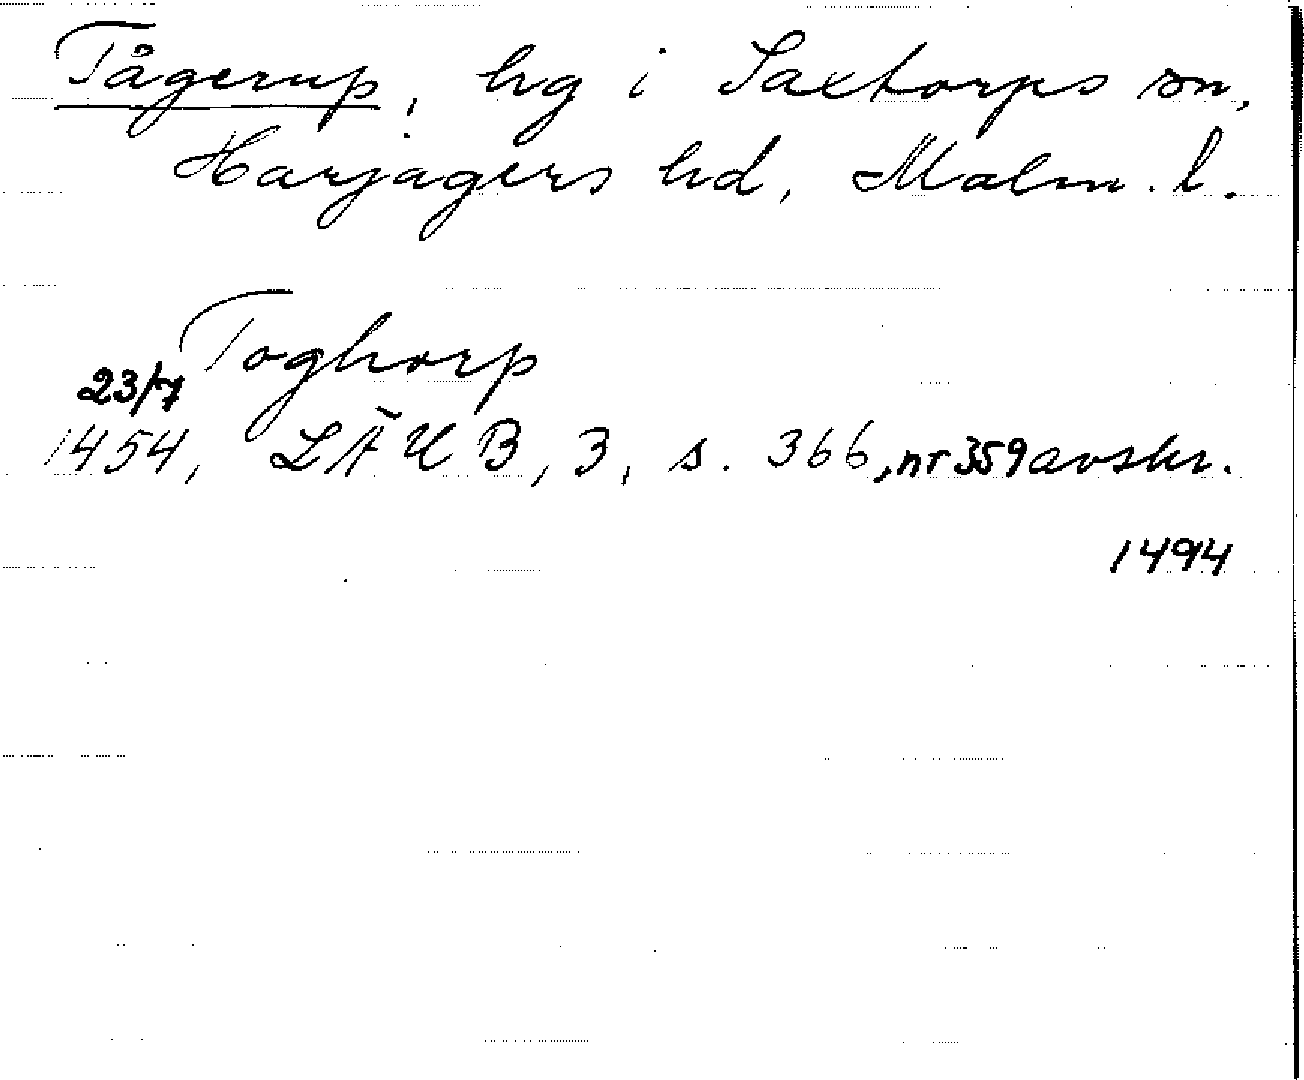 Tågerup, hg i Saxtorps sn,
Harjagers hd, Malm. l.
Toghorp
23/7
1454, LÄUB, 3, s. 366, nr 359 avskr.
1494